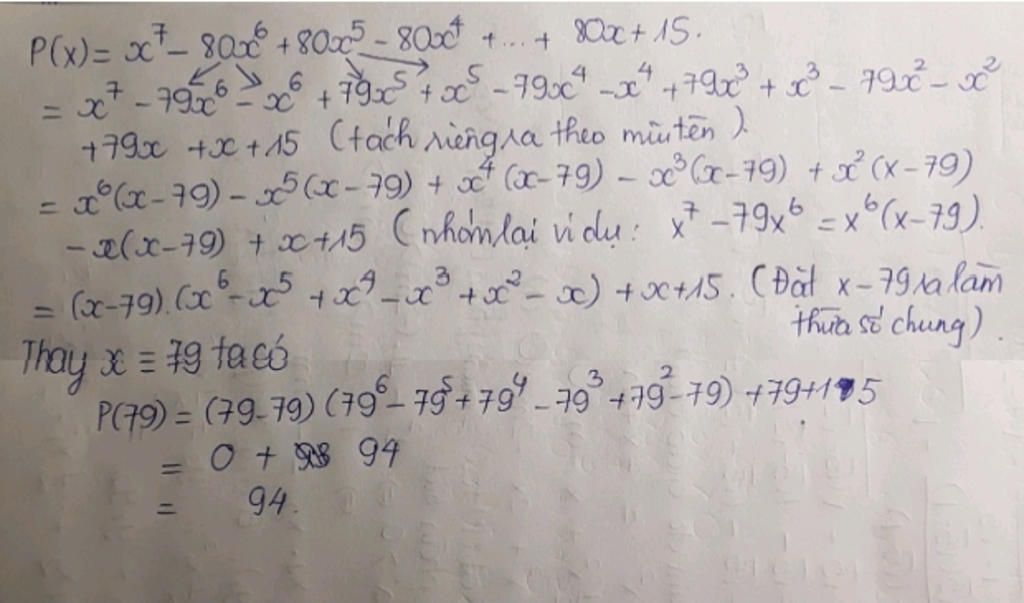 P(x) = x⁷ - 80x⁶ + 80x⁵ - 80x⁴ + ... + 80x + 15.
= x⁷ - 79x⁶ - x⁶ + 79x⁵ + x⁵ - 79x⁴ - x⁴ + 79x³ + x³ - 79x² - x²
+ 79x + x + 15 (tách riêng ra theo mũi tên).
= x⁶(x - 79) - x⁵(x - 79) + x⁴(x - 79) - x³(x - 79) + x²(x - 79)
- x(x - 79) + x + 15 (nhóm lại ví dụ: x⁷ - 79x⁶ = x⁶(x - 79).
= (x - 79).(x⁶ - x⁵ + x⁴ - x³ + x² - x) + x + 15. (Đặt x - 79 ra làm
thừa số chung).
Thay x = 79 ta có
P(79) = (79 - 79)(79⁶ - 79⁵ + 79⁴ - 79³ + 79² - 79) + 79 + 15
= 0 + 94
= 94.